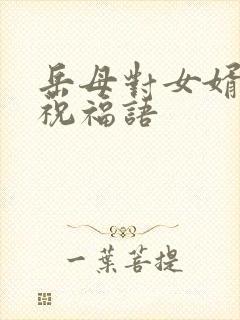 岳母對女婿
祝福語
一葉菩提